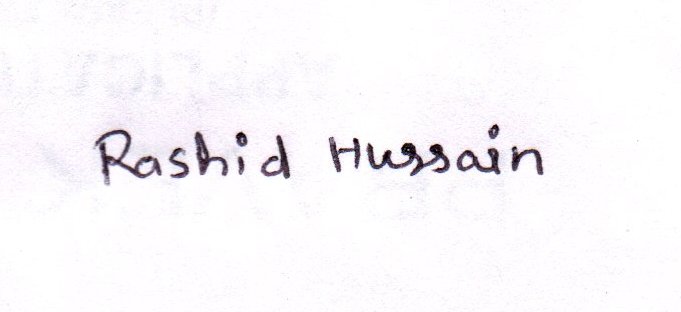 Rashid Hussain